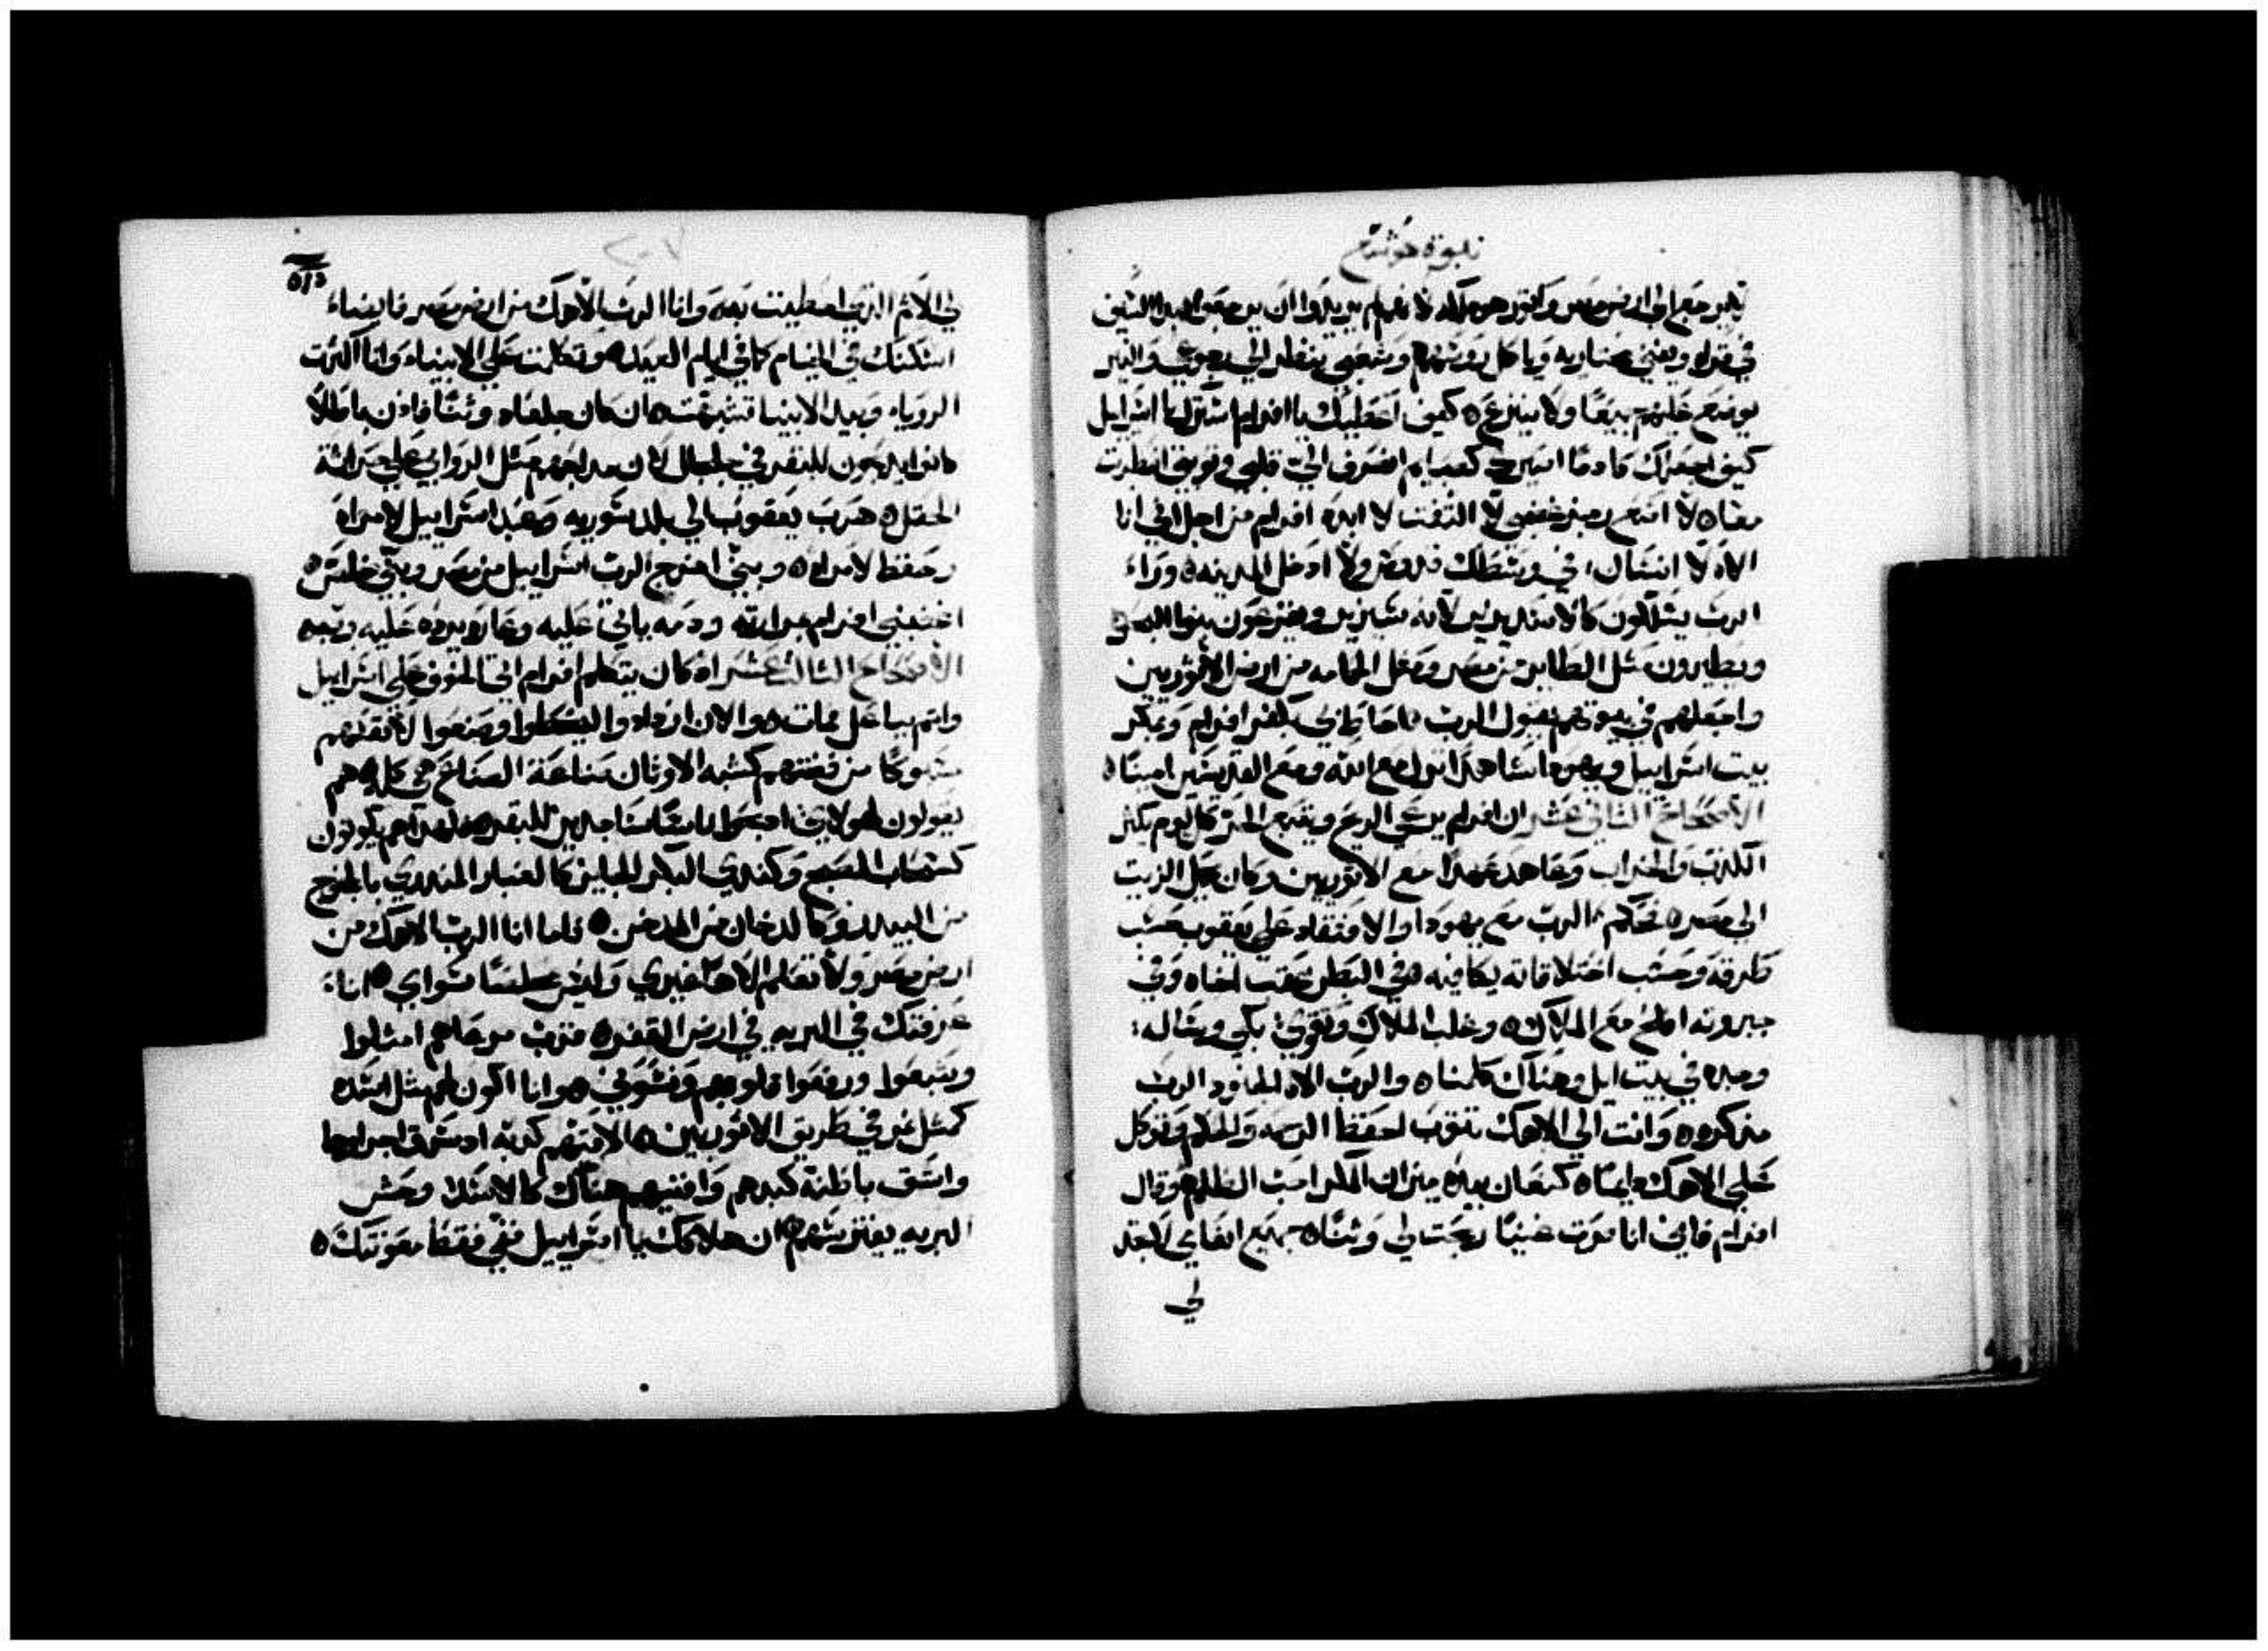 نبوة هوشع
يرجع الى ارض مصر واثور هو ملكه لانهم لم يريدوا ان يرجعوا ابدا السيف
في قراه ويفني مختاريه وياكل رووسهم وشعبي ينظر الى رجوعي والنير
يوضع عليهم جميعا ولا ينزع ٥ كيف اعطيك يا افرام استرك يا اسراييل
كيف اجعلك كادما اصيرك كصبايم انصرف الي قلبي في توبيخي اضطربت
معا ٥ لا اصنع رجز غضبي لا التفت لابيد افرام من اجل اني انا
الاه لا انسان في وسطك قدوس ولا ادخل المدينه ٥ وراء
الرب يسلكون كالاسد يزير لانه سيزير ويفزعون بنوا البحر
ويطيرون مثل الطاير من مصر ومثل الحمامه من ارض الاثوريين
واجعلهم في بيوتهم يقول الرب ٥ احاط بي بكفر افرام وبمكر
بيت اسراييل ويهودا شاهدا نزل مع الله ومع القديسين امينا ٥
الاصحاح الثاني عشر ان افرام يرعى الريح ويتبع الحر كل يوم يكثر
الكذب والخراب وعاهد عهدا مع الاثوريين وكان يحمل الزيت
الى مصر ٥ تحاكم الرب مع يهودا والافتقاد على يعقوب حسب
طرقه وحسب اختلاقاته يكافيه ٥ في البطن عقب اخاه وفي
جبروته افلح مع الملاك ٥ وغلب الملاك وتقوى بكي وساله
وجده في بيت ايل وهناك كلمنا ٥ والرب الاه الجنود الرب
مذكره ٥ وانت الى الاهك تتوب احفظ الرحمه والحكم وتوكل
على الاهك دايما ٥ كنعان بيده ميزان المكر احب الظلم ٥ وقال
افرام فاني انا صرت غنيا وجدت لي وثنا ٥ جميع اتعابي لا تجد
لي
٥١٣
٢٠٧
لي الاثم الذي اخطيت به ٥ وانا الرب الاهك من ارض مصر فايضاء
اسكنك في الخيام كما في ايام العيد ٥ وتكلمت على الانبياء وانا اكثرت
الروياء وبيد الانبيا تشبهت ٥ ان كان جلعاد وثنا فاذن باطلا
كانوا يذبحون للبقر في جلجال لان مذابحهم مثل الروابي على حراثة
الحقل ٥ هرب يعقوب الي بلد سوريه وتعبد اسراييل لامراة
وحفظ لامراه ٥ وبنبي اخرج الرب اسراييل من مصر وبنبي خلص ٥
اغضبني افرام بمرارته ودمه ياتي عليه وعاره يرده عليه ربه ٥
الاصحاح الثالث عشر اذ كان يتكلم افرام اتى الخوف على اسراييل
واثم بباعل فمات ٥ والان ازدادوا ليخطوا وصنعوا لانفسهم
مسبوكا من فضتهم كشبه الاوثان صناعة الصناع هي كلها هم
يقولون لهولاء اذبحوا يا ناسا ساجدين للبقر ٥ لهذا هم يكونون
كسحاب الصبح وكندي البكر الجايز كالغبار المذري بالعاصف
من البيدر وكالدخان من المدخن ٥ فاما انا الرب الاهك من
ارض مصر ولا تعلم الاها غيري وليس مخلصا سواي ٥ انا
عرفتك في البريه في ارض القفر ٥ قرب مرعاهم امتلوا
وشبعوا ورفعوا قلوبهم ونسوني ٥ وانا اكون لهم مثل اسد ٥
كمثل نمر في طريق الاثوريين ٥ الاقيهم كدبه اذ سرق اجراوها
واشق باطنة كبدهم وافنيهم هناك كالاسد وحش
البريه يفترسهم ٥ ان هلاكك يا اسراييل ففي فقط معونتك ٥